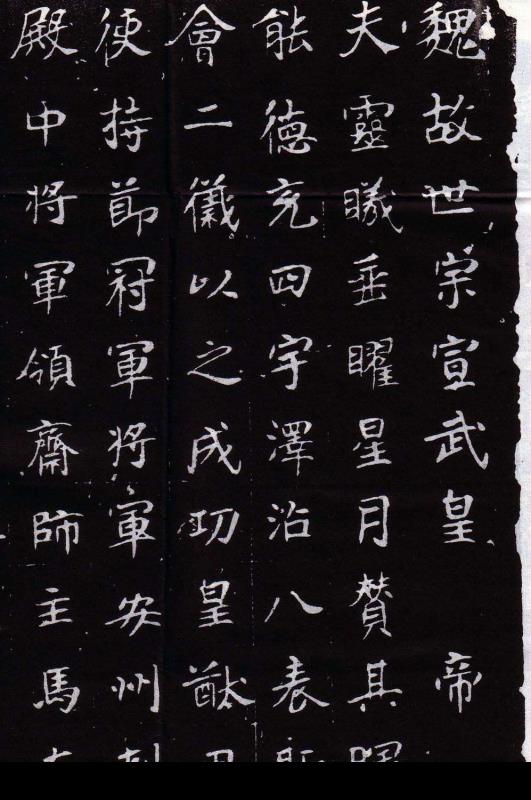 魏故世宗宣武皇帝
夫靈曦垂曜星月贊其
能德充四宇澤沾八表
會二儀以之成功皇猷
使持節冠軍將軍安州刺
殿中將軍領齋師主馬